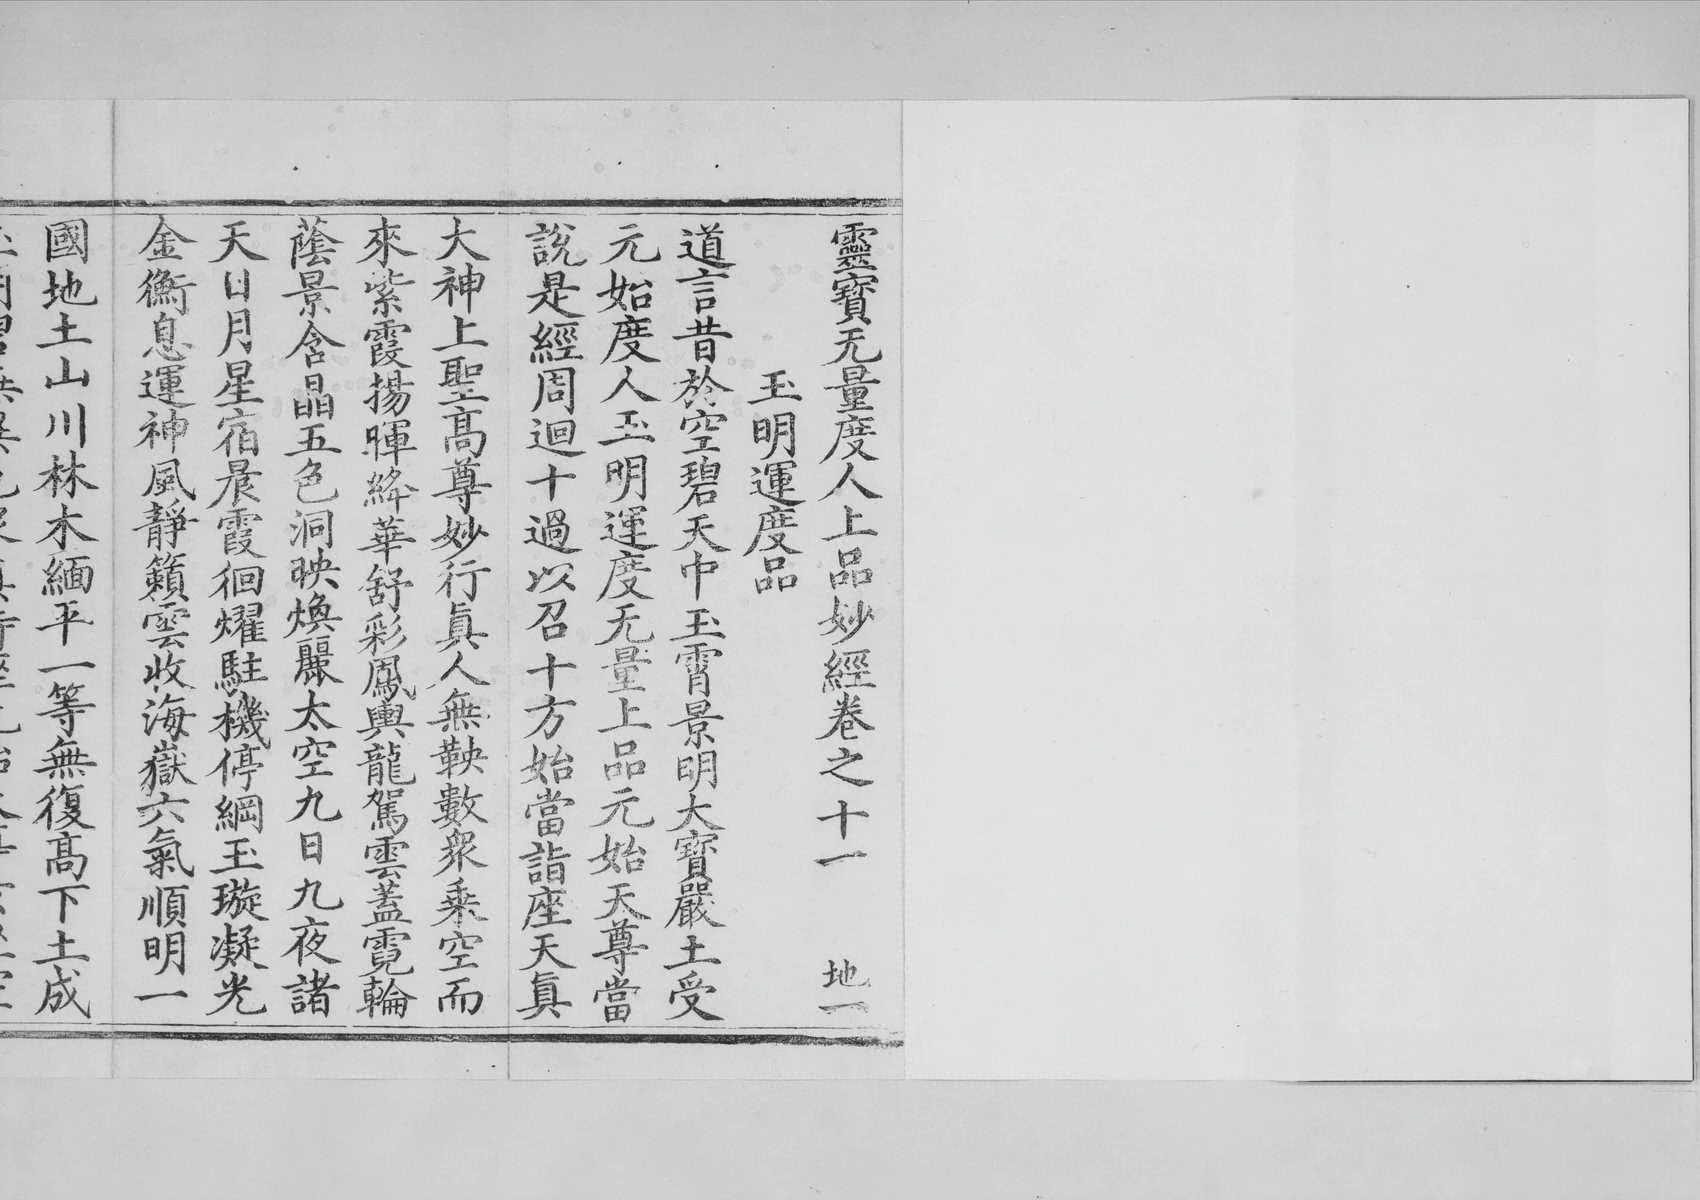 靈寶无量度人上品妙經卷之十一 地一
玉明運度品
道言昔於空碧天中玉霄景明大寶嚴土受
元始度人玉明運度无量上品元始天尊當
說是經周迴十過以召十方始當詣座天眞
大神上聖髙尊妙行眞人無鞅數衆乗空而
來紫霞揚暉絳華舒彩鳳輿龍駕雲蓋霓輪
蔭景含晶五色洞映煥麗太空九日九夜諸
天日月星宿晨霞徊燿駐機停綱玉璇凝光
金衡息運神風靜籟雲收海嶽六氣順明一
國地土山川林木緬平一等無復髙下土成